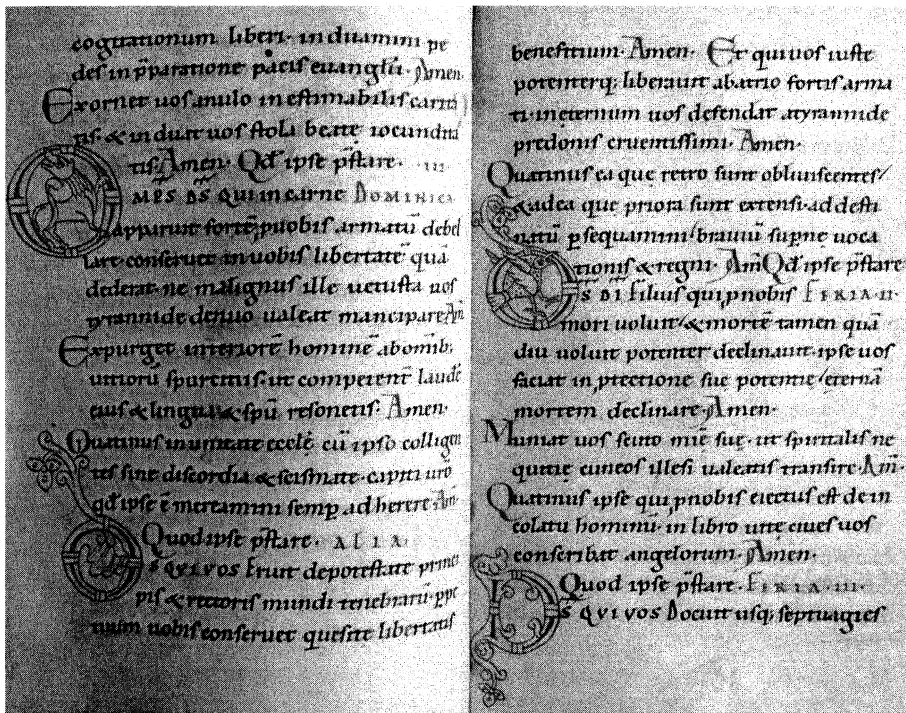 cogitationum liberi· induamini pe
des in p̄paratione pacis euangłii· Amen
Exornet uos anulo inestimabilis carita
tis· & induat uos stola beatę iocundita
tis· Amen· Qđ ipse p̄stare· III
MPS DS̄ QUI IN CARNE DOMINICA
apparuit fortē· p uobis armatū debel
lare conseruet in uobis libertatē quā
dederat ne malignus ille uetusta uos
tyrannide denuo ualeat mancipare Am̄
Expurget interiorē hominē abomib;
uitiorū spurcitiis· ut competenť laudē
eius & lingua & sp̄u resonetis· Amen·
Quatinus in unitate ecclę cū ipso colligen
tes sine discordia & scismate· capiti ur̄o
qđ ipse ē mereamini semp̄ adherere Am̄·
Quod ipse p̄stare· ALIA·
S̄ QVI VOS Eruit de potestate princi
pis & rectoris mundi tenebrarū· ppe
tuum uobis conseruet quesite libertatis
benefitium· Amen· Et qui uos iuste
potenterq; liberauit ab atrio fortis arma
ti· in eternum uos defendat a tyrannide
predonis cruentissimi· Amen·
Quatinus ea que retro sunt obliuiscentes/
& ad ea que priora sunt extensi· ad desti
natū psequamini/ brauiū supne uoca
tionis & regni· Am̄ Qđ ipse p̄stare
S̄ DI Filius qui p nobis FERIA II·
mori uoluit/ & mortē tamen quā
diu uoluit potenter declinauit· ipse uos
faciat in ptectione sue potentie/ eternā
mortem declinare· Amen·
Muniat uos scuto mię suę· ut spiritalis ne
quitię cuneos illesi ualeatis transire· Am̄·
Quatinus ipse qui p nobis eiectus est de in
colatu hominū· in libro uitę ciues uos
conscribat angelorum· Amen·
Quod ipse p̄stare· FERIA III·
S̄ QVI VOS Docuit usq; septuagies